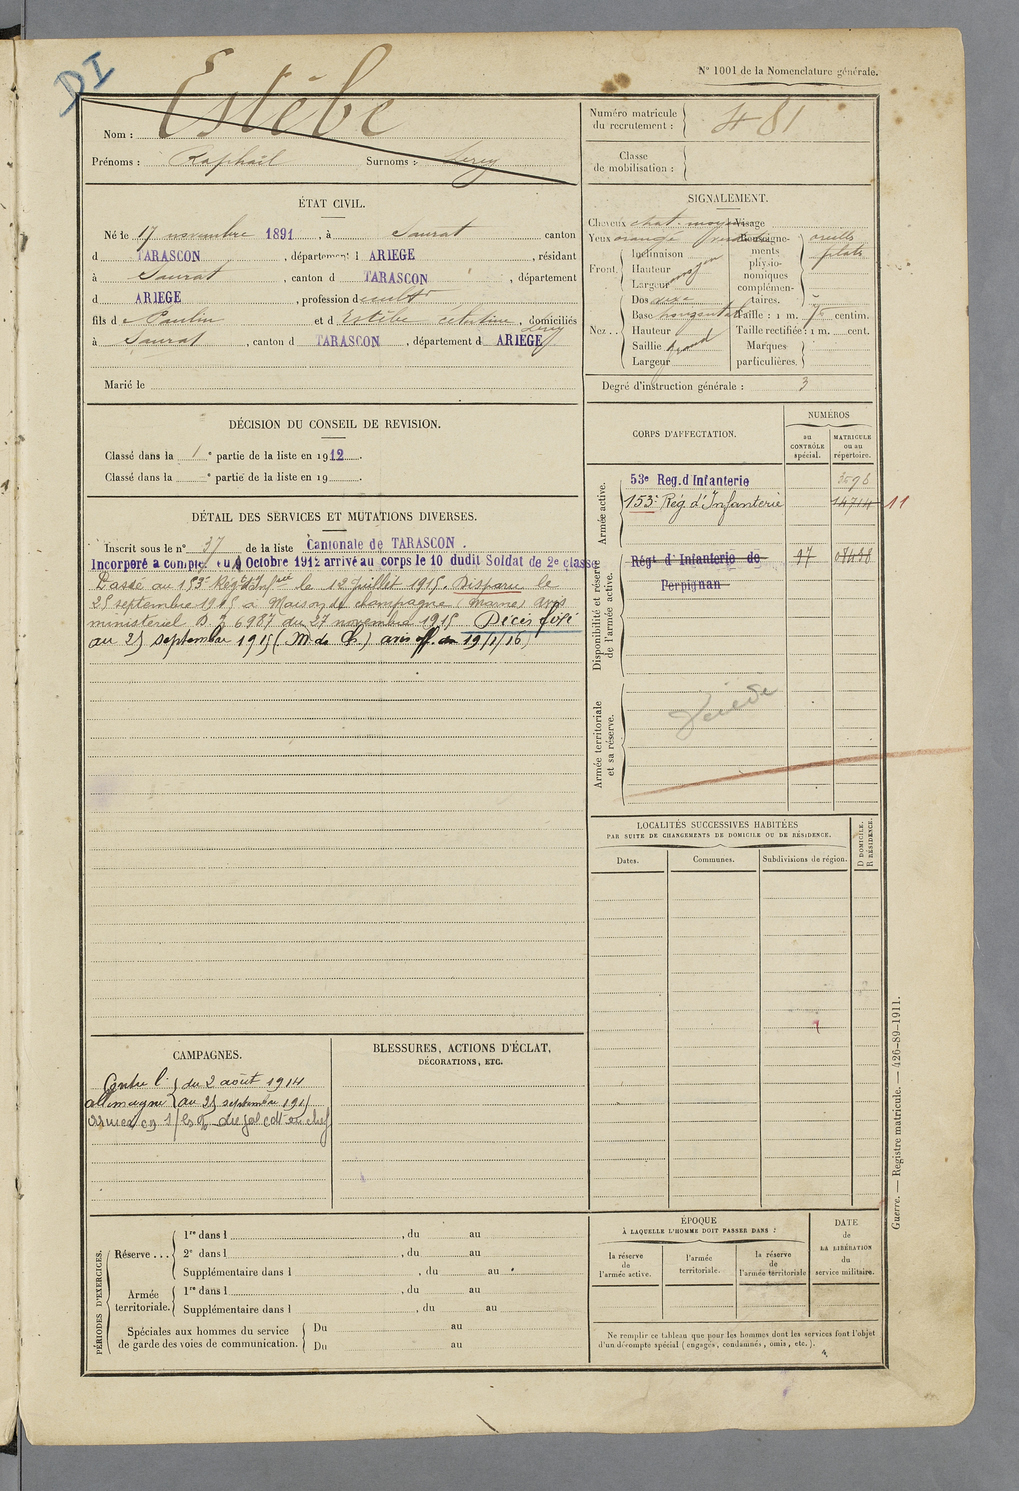 DI
N° 1001 de la Nomenclature générale.
Nom : Estèbe
Prénoms : Raphaël Surnoms : Lény
Numéro matricule du recrutement : 481
Classe de mobilisation :
ÉTAT CIVIL.
Né le 17 novembre 1891, à Saurat canton
d TARASCON, département d ARIEGE, résidant
à Saurat, canton d TARASCON, département
d ARIEGE, profession de cultr
fils de Paulin et d Estèbe, domiciliés
à Saurat, canton d TARASCON, département d ARIEGE
Marié le
SIGNALEMENT.
Cheveux chat. moyen Visage
Yeux orangé Renseignements physionomiques complémentaires. oreilles plats
Front. Inclinaison
Hauteur moyen
Largeur
Nez. Dos
Base horizontale
Hauteur
Saillie grand
Largeur
Taille : 1 m. centim.
Taille rectifiée : 1 m. cent.
Marques particulières.
Degré d'instruction générale : 3
DÉCISION DU CONSEIL DE REVISION.
Classé dans la 1e partie de la liste en 1912.
Classé dans la e partie de la liste en 19 .
DÉTAIL DES SERVICES ET MUTATIONS DIVERSES.
Inscrit sous le n° 37 de la liste Cantonale de TARASCON.
Incorporé a compter du Octobre 1912 arrivé au corps le 10 dudit Soldat de 2e classe
Passé au 153e Rég. d'Infrie le 12 juillet 1915. Disparu le
25 septembre 1915 à Maison de champagne (Marne) avis
ministériel B. Z 6987 du 27 novembre 1915 Décès fixé
au 25 septembre 1915 (M. de Ch.) avis off. du 19/1/16)
CORPS D'AFFECTATION.
NUMÉROS
au CONTRÔLE spécial.
MATRICULE ou au répertoire.
Armée active.
53e Reg. d'Infanterie
153e Rég d'Infanterie 14714 11
Disponibilité et réserve de l'armée active.
Régt d'Infanterie de Perpignan 17
Armée territoriale et sa réserve.
LOCALITÉS SUCCESSIVES HABITÉES
PAR SUITE DE CHANGEMENTS DE DOMICILE OU DE RÉSIDENCE.
Dates. Communes. Subdivisions de région. D DOMICILE. R RÉSIDENCE.
CAMPAGNES.
Contre l' du 2 août 1914
allemagne au 25 septembre 1915
BLESSURES, ACTIONS D'ÉCLAT,
DÉCORATIONS, ETC.
PÉRIODES D'EXERCICES.
Réserve ... 1re dans l , du au
2e dans l , du au
Supplémentaire dans l , du au
Armée territoriale. 1re dans l , du au
Supplémentaire dans l , du au
Spéciales aux hommes du service de garde des voies de communication. Du au
Du au
ÉPOQUE
À LAQUELLE L'HOMME DOIT PASSER DANS :
la réserve de l'armée active.
l'armée territoriale.
la réserve de l'armée territoriale
DATE de LA LIBÉRATION du service militaire.
Ne remplir ce tableau que pour les hommes dont les services font l'objet
d'un décompte spécial (engagés, condamnés, omis, etc.).
Guerre. — Registre matricule. — 426-89-1911.